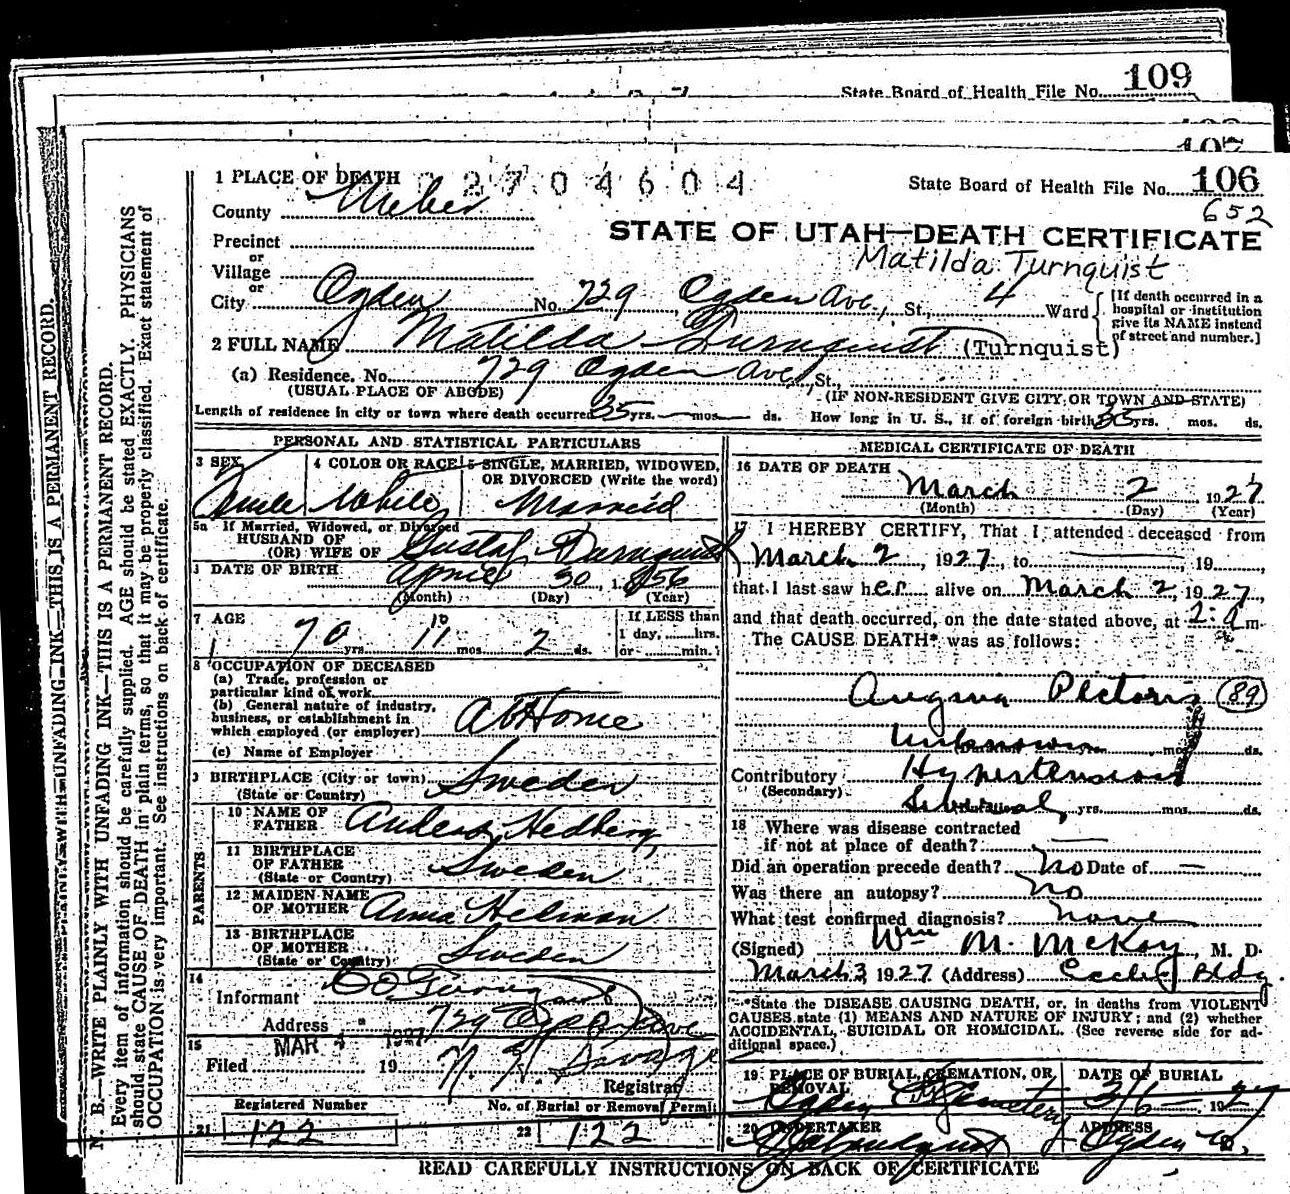 State Board of Health File No. 109
107
1 PLACE OF DEATH 02704604 State Board of Health File No. 106
652
County Weber
STATE OF UTAH—DEATH CERTIFICATE
Precinct
Matilda Turnquist
or
Village
or
City Ogden No. 729 Ogden Ave, St., 4 Ward
[If death occurred in a
hospital or institution
give its NAME instead
of street and number.]
2 FULL NAME Matilda Turnquist (Turnquist)
(a) Residence. No. 729 Ogden Ave, St.,
(USUAL PLACE OF ABODE) (IF NON-RESIDENT GIVE CITY, OR TOWN AND STATE)
Length of residence in city or town where death occurred 35 yrs. — mos. ds. How long in U. S., if of foreign birth 35 yrs. mos. ds.
PERSONAL AND STATISTICAL PARTICULARS
3 SEX 4 COLOR OR RACE 5 SINGLE, MARRIED, WIDOWED,
OR DIVORCED (Write the word)
White Married
5a If Married, Widowed, or Divorced
HUSBAND OF
(OR) WIFE OF Gustaf Turnquist
DATE OF BIRTH April 30, 1856
(Month) (Day) (Year)
7 AGE
70 yrs. 10 11 mos. 2 ds.
If LESS than
1 day, hrs.
or min.
8 OCCUPATION OF DECEASED
(a) Trade, profession or
particular kind of work
(b) General nature of industry,
business, or establishment in
which employed (or employer) At Home
(c) Name of Employer
9 BIRTHPLACE (City or town) Sweden
(State or Country)
PARENTS
10 NAME OF
FATHER Anders Hedberg
11 BIRTHPLACE
OF FATHER Sweden
(State or Country)
12 MAIDEN NAME
OF MOTHER Anna Hedman
13 BIRTHPLACE
OF MOTHER Sweden
(State or Country)
14
Informant
Address 729 Ogden Ave
15 MAR 4 1927
Filed 19 Savage
Registrar
Registered Number No. of Burial or Removal Permit
21 122 22 122
MEDICAL CERTIFICATE OF DEATH
16 DATE OF DEATH
March 2, 1927
(Month) (Day) (Year)
17 I HEREBY CERTIFY, That I attended deceased from
March 2, 1927, to 19
that I last saw her alive on March 2, 1927,
and that death occurred, on the date stated above, at m.
The CAUSE DEATH* was as follows:
Angina Pectoris (89)
Unknown mos. ds.
Contributory Hypertension
(Secondary)
Several yrs. mos. ds.
18 Where was disease contracted
if not at place of death? —
Did an operation precede death? No Date of —
Was there an autopsy? No
What test confirmed diagnosis? None
(Signed) Wm M. McKay, M. D.
March 3 1927 (Address) Eccles Bldg.
*State the DISEASE CAUSING DEATH, or, in deaths from VIOLENT
CAUSES, state (1) MEANS AND NATURE OF INJURY; and (2) whether
ACCIDENTAL, SUICIDAL OR HOMICIDAL. (See reverse side for ad-
ditional space.)
19 PLACE OF BURIAL, CREMATION, OR DATE OF BURIAL
REMOVAL
Ogden City Cemetery 3/6 — 1927
20 UNDERTAKER ADDRESS
Ogden U.
READ CAREFULLY INSTRUCTIONS ON BACK OF CERTIFICATE
N. B.—WRITE PLAINLY WITH UNFADING INK—THIS IS A PERMANENT RECORD.
Every item of information should be carefully supplied. AGE should be stated EXACTLY. PHYSICIANS
should state CAUSE OF DEATH in plain terms, so that it may be properly classified. Exact statement of
OCCUPATION is very important. See instructions on back of certificate.
PLAINLY WITH UNFADING INK—THIS IS A PERMANENT RECORD.